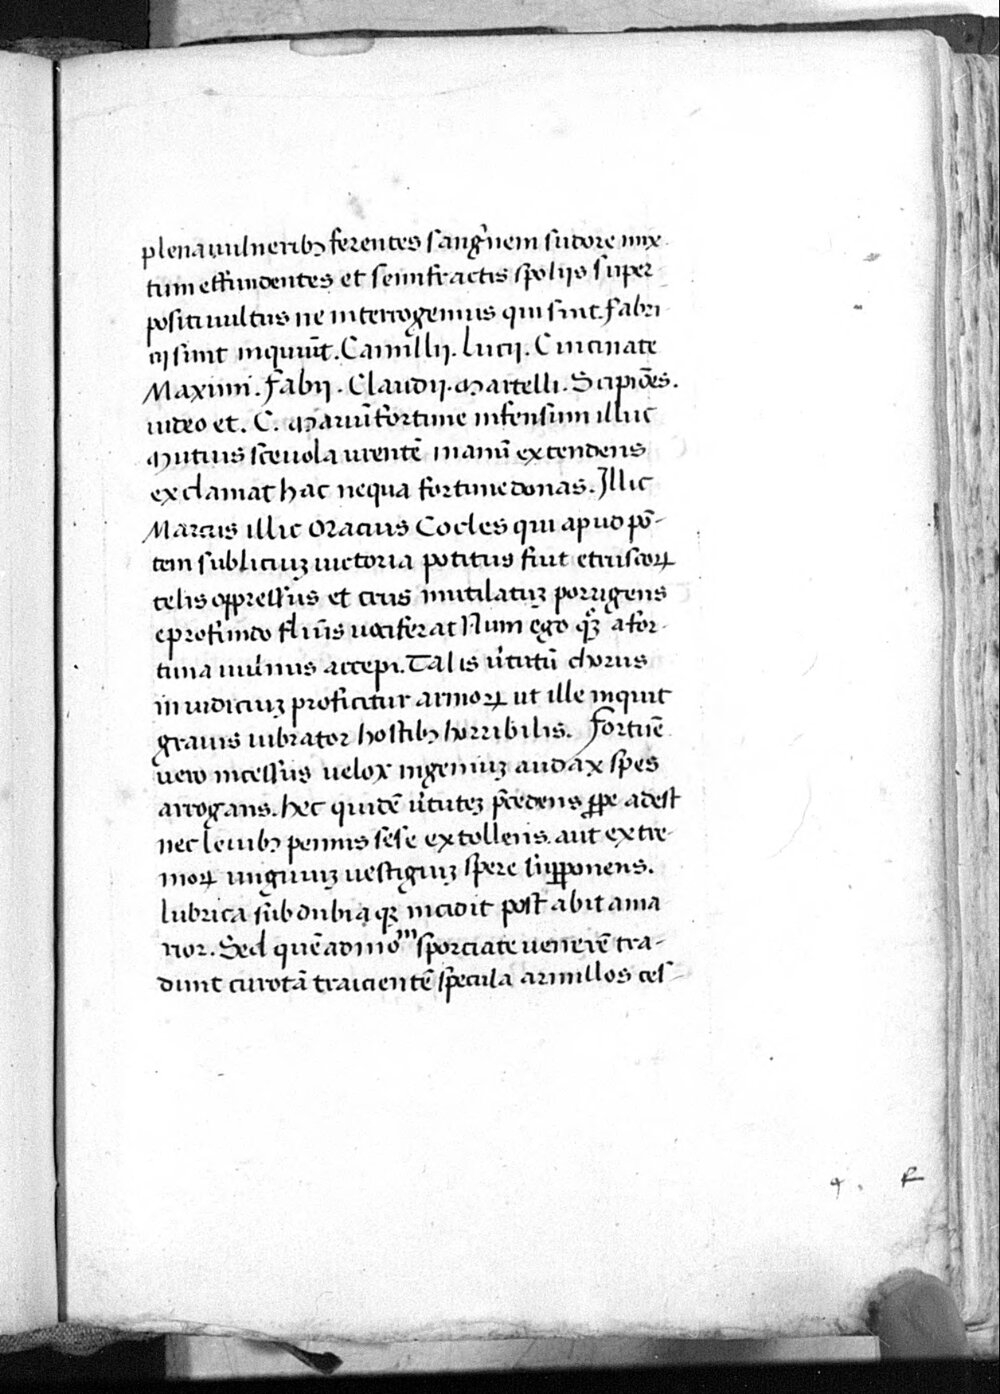 plena uulneribꝫ ferentes sangͥnem sudore mix
tum effundentes et semifractis spolijs super
positi uultus ne interrogemus qui sint fabri
cij sint inquiūt. Camillij. Lucij. Cincinate
Maximi. Fabij. Claudij. Martelli. Scipiōes.
uideo et. C. Mariū fortune infensum illuc
Mutius sceuola urentē manū extendens
exclamat hac nequa fortune donas. Illic
Marcus illic Oracius Cocles qui apud pō-
tem subliciuꝫ uictoria potitus fuit etruscoꝝ
telis oppressus et crus mutilatuꝫ porrigens
eprofundo fluuīs uociferat Num ego qꝫ a for-
tuna uulnus accepi. Talis uͥtutū chorus
in uidiciuꝫ proficitur armoꝝ ut ille inquit
grauis uibrator hostibꝫ horribilis. Fortūe
uero incessus uelox ingeniuꝫ audax spes
arrogans. hec quidē uͥtuteꝫ p̄cedens ꝓpe adest
nec leuibꝫ pennis sese extollens. aut extre-
moꝝ unguiuꝫ uestigiuꝫ spere suꝑponens.
lubrica sub dubia qꝫ incidit post abit ama
rior. Sed quēadmoᵐ sporciate uenerē tra-
dunt eurotā traicientē specula armillos ces-
4. R